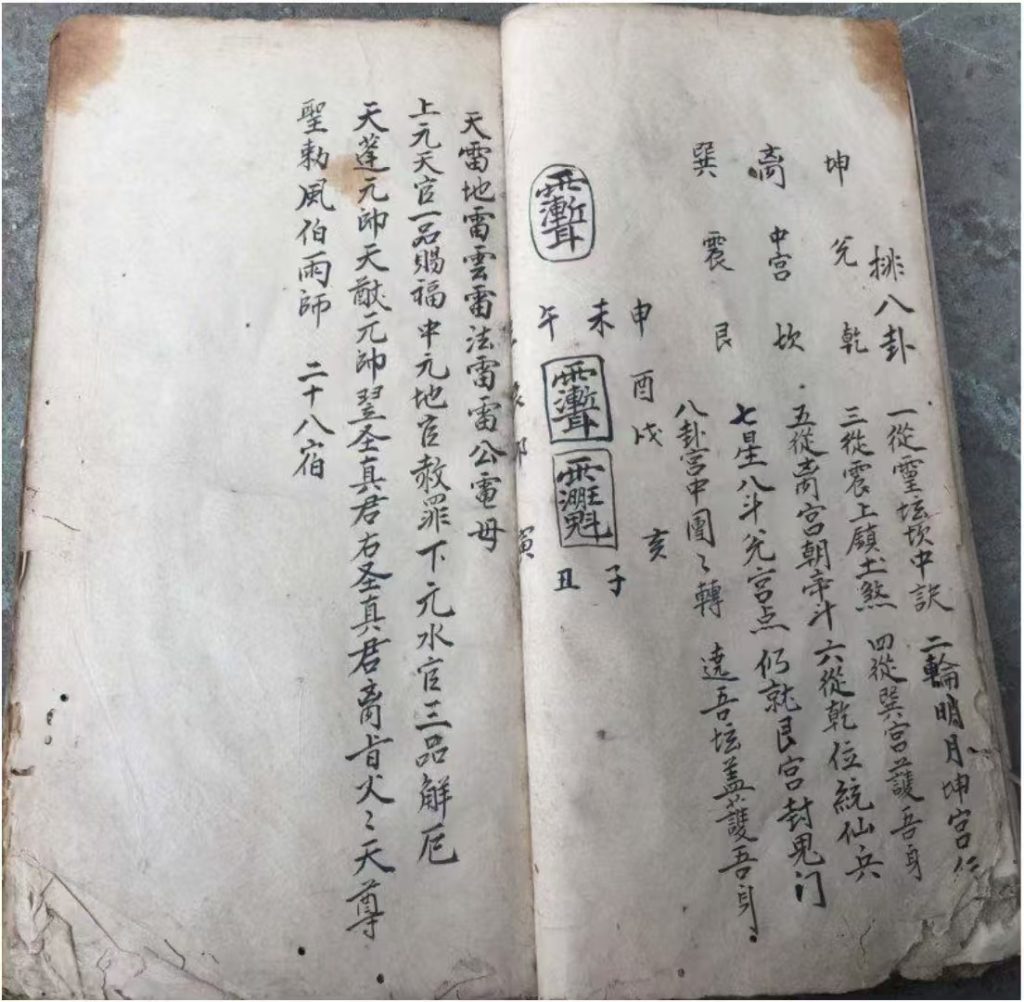 排八卦
坤 兑 乾
离 中宫 坎
巽 震 艮
一從靈坛坎中訣 二輪明月坤宫
三從震上鎮土煞 四從巽宫護吾身
五從离宫朝帝斗 六從乾位統仙兵
七星八斗兑宫点 仍就艮宫封鬼门
八卦宫中團〻轉 遶吾坛盖護吾身
申 酉 戌 亥
未 子
午 丑
卯 寅
天雷地雷雲雷法雷雷公電母
上元天官一品賜福中元地官赦罪下元水官三品解厄
天蓬元帥天猷元帥翌圣真君右圣真君离肯火〻天尊
聖勅風伯雨師 二十八宿